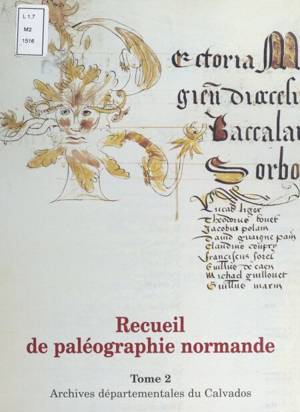 L 1.7
M2
1516
Rectoria M
gien̄ diocesi
Baccala
Sorbo
Lucas liger
Theodorus bouet
Jacobus polain
David guaigne pain
Claudius coupry
franciscus sorel
Guillus de caen
Michael guillouet
Guillus marin
Recueil
de paléographie normande
Tome 2
Archives départementales du Calvados